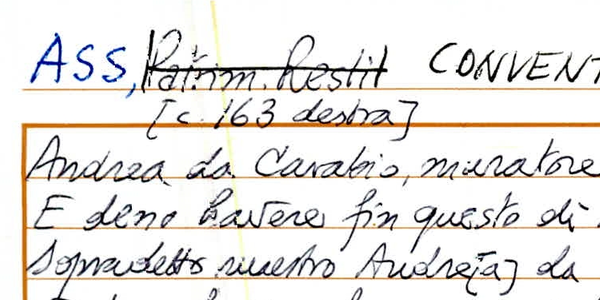 ASS, Patrim. Restit CONVENT
[c. 163 destra]
Andrea da Carabio, muratore
E deno havere fin questo di
Sopradetto maestro Andre[a] da